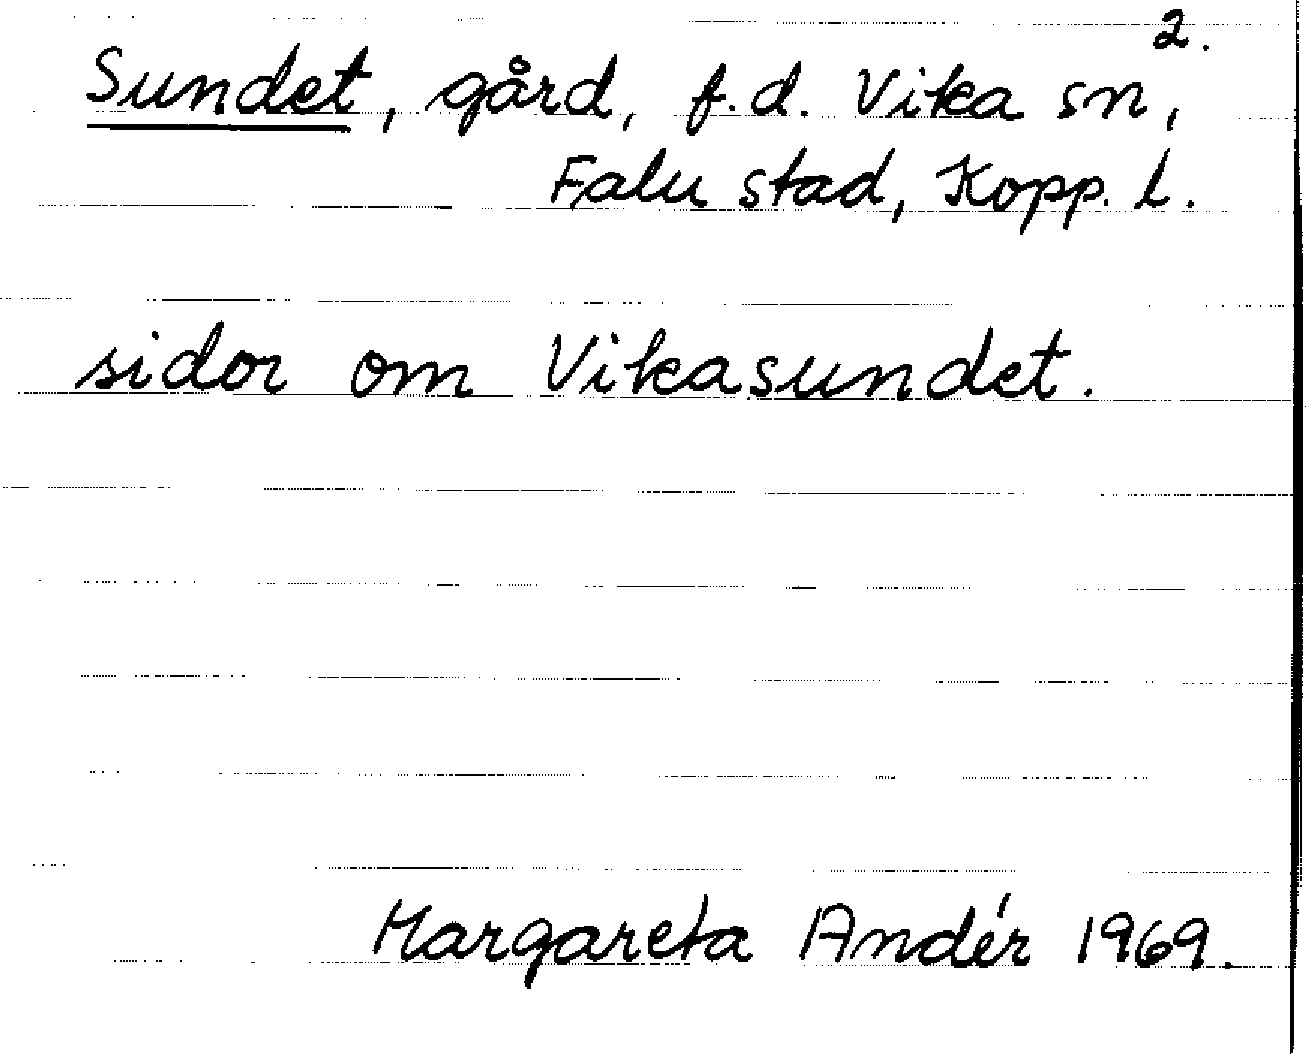 2.
Sundet, gård, f.d. Vika sn,
Falu stad, Kopp. l.
sidor om Vikasundet.
Margareta Andér 1969.